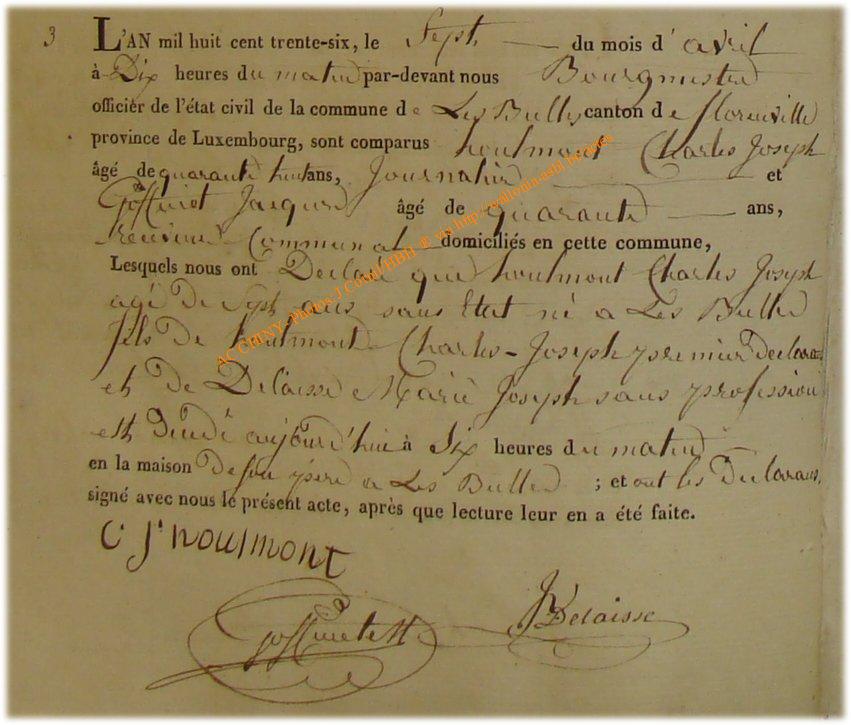 3
L'AN mil huit cent trente-six, le Sept du mois d' avril
à Dix heures du matin par-devant nous Bourgmestre
officier de l'état civil de la commune de Les Bulles canton de florenville
province de Luxembourg, sont comparus houlmont Charles Joseph
âgé de quarante huit ans, Journalier et
Goffinet Jacques âgé de quarante ans,
Receveur Communal domiciliés en cette commune,
Lesquels nous ont Declaré que houlmont Charles Joseph
agé de Sept ans sans Etat né a Les Bulles
fils de houlmont Charles-Joseph premier Declarant
et de Delaisse Marie Joseph sans profession
est décédé aujourd'hui à Six heures du matin
en la maison de son père a Les Bulles ; et ont les Declarans,
signé avec nous le présent acte, après que lecture leur en a été faite.
C J houlmont
Goffinet
Delaisse
ACCHINY -Photos J Collin/HBH ® via http://wallonia-asbl